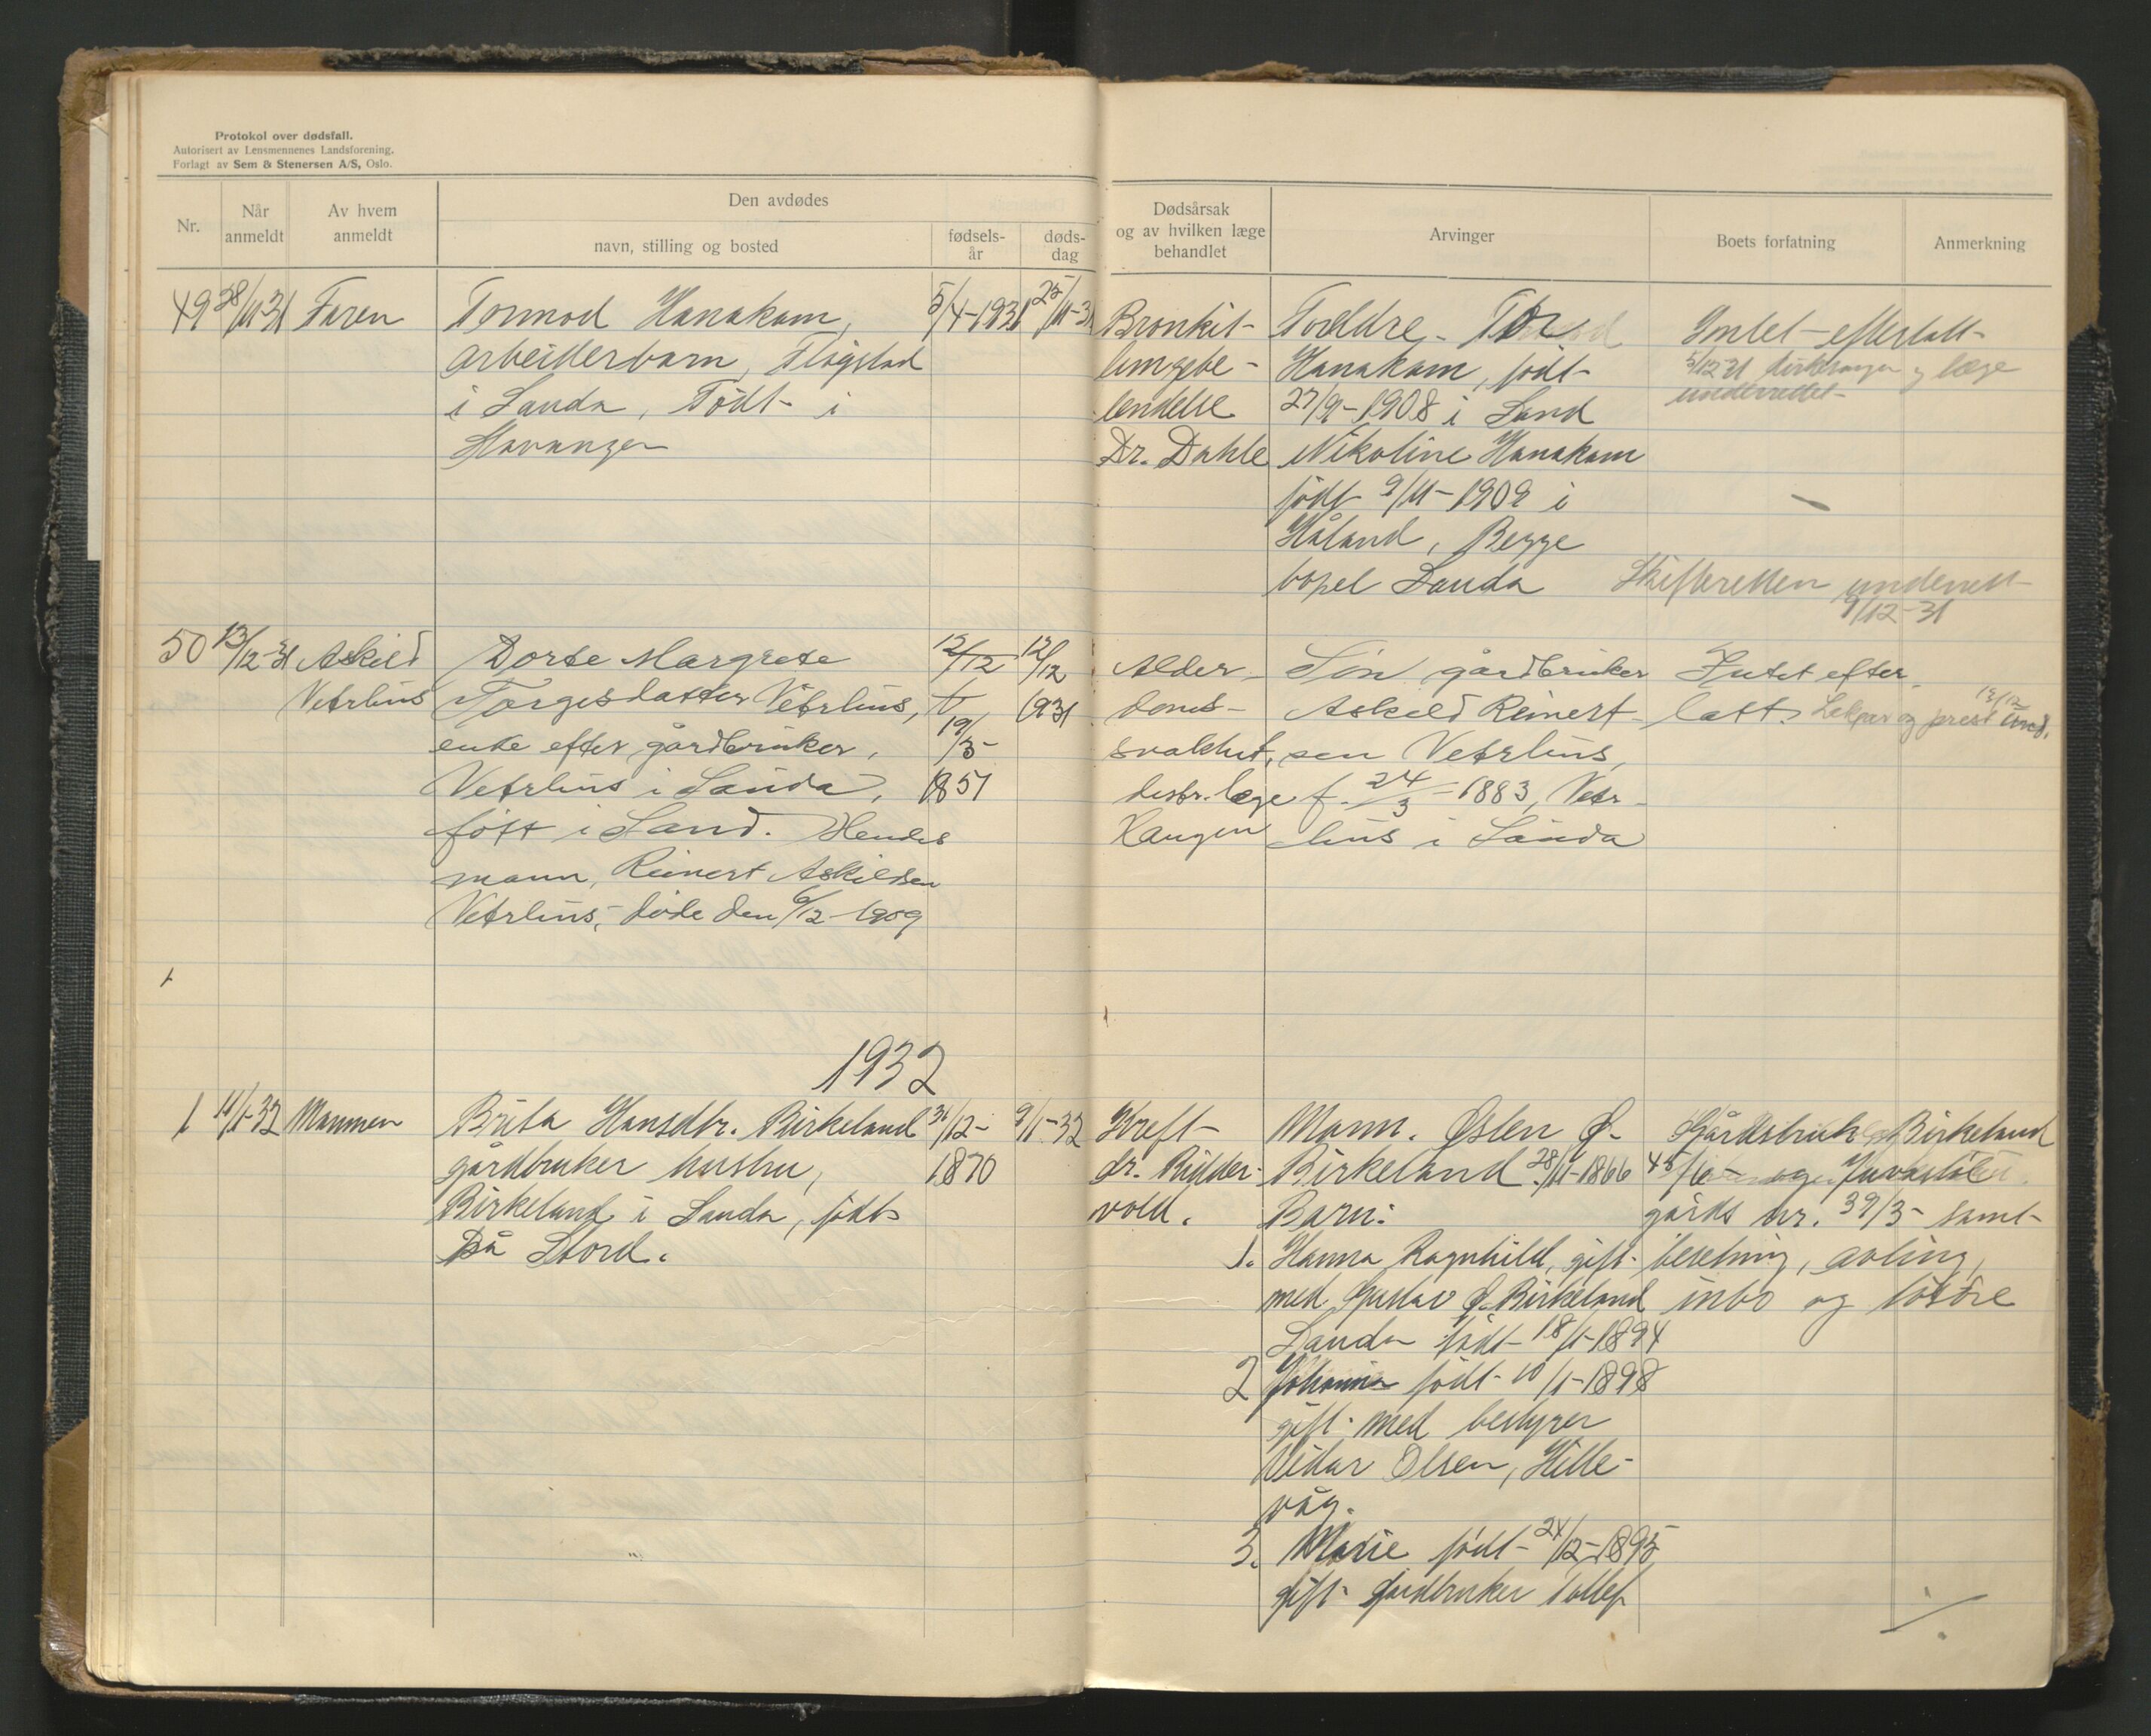 Protokol over dødsfall.
Autorisert av Lensmennenes Landsforening.
Forlagt av Sem & Stenersen A/S, Oslo.
Nr.
Når anmeldt
Av hvem anmeldt
Den avdødes
navn, stilling og bosted
fødsels-
år
døds-
dag
Dødsårsak
og av hvilken læge
behandlet
Arvinger
Boets forfatning
Anmerkning
49 28/11-31 Faren
Tormod Hanakam,
arbeiderbarn, Fløgstad
i Sauda, Født i
Stavanger
5/4-1931
25/11-31
Bronkit-
lungebe-
tendelse
Dr. Dahle
Foreldre. Tor
Hanakam, født
27/9-1908 i Sand
Nikoline Hanakam
født 9/11-1909 i
Håland, Begge
bopel Sauda
Intet efterlatt
5/12 31 kirkesanger og læge
underrettet
Skifteretten underrett
9/12-31
50 13/12-31 Askild
Vetrhus
Dorte Margrete
Torgesdatter Vetrhus,
enke efter gårdbruker,
Vetrhus i Sauda,
født i Sand. Hendes
mann, Reinert Askildsen
Vetrhus, døde den 6/12-1909
12/12
19/3-
1851
12/12
1931
Alder-
doms-
svakhet,
distr. læge
Haugen
Søn gårdbruker
Askild Reinert-
sen Vetrhus,
f. 24/3-1883, Vetr-
hus i Sauda
Intet efter-
latt.
og prest und.
13/12
1932
1 11/1-32 Mannen
Brita Hansdtr. Birkeland
gårdbruker hustru,
Birkeland i Sauda, født
på Stord.
31/12-
1870
9/1-32
Kreft
dr. Rylder-
vold.
Mann. Østen Ø.
Birkeland. 28/11-1866
Barn:
1. Hanna Ragnhild, gift
med Gustav Ø. Birkeland
Sauda født 18/1-1894
2 Johanna født 10/1-1898
gift med bestyrer
Vidar Olsen, Hille-
våg.
3. Marie født 24/12-1895
gift gårdbruker Tollef
Gårdsbruk Birkeland
45/6 og
gårds nr. 39/3 samt
besetning, avling,
inbo og løsøre